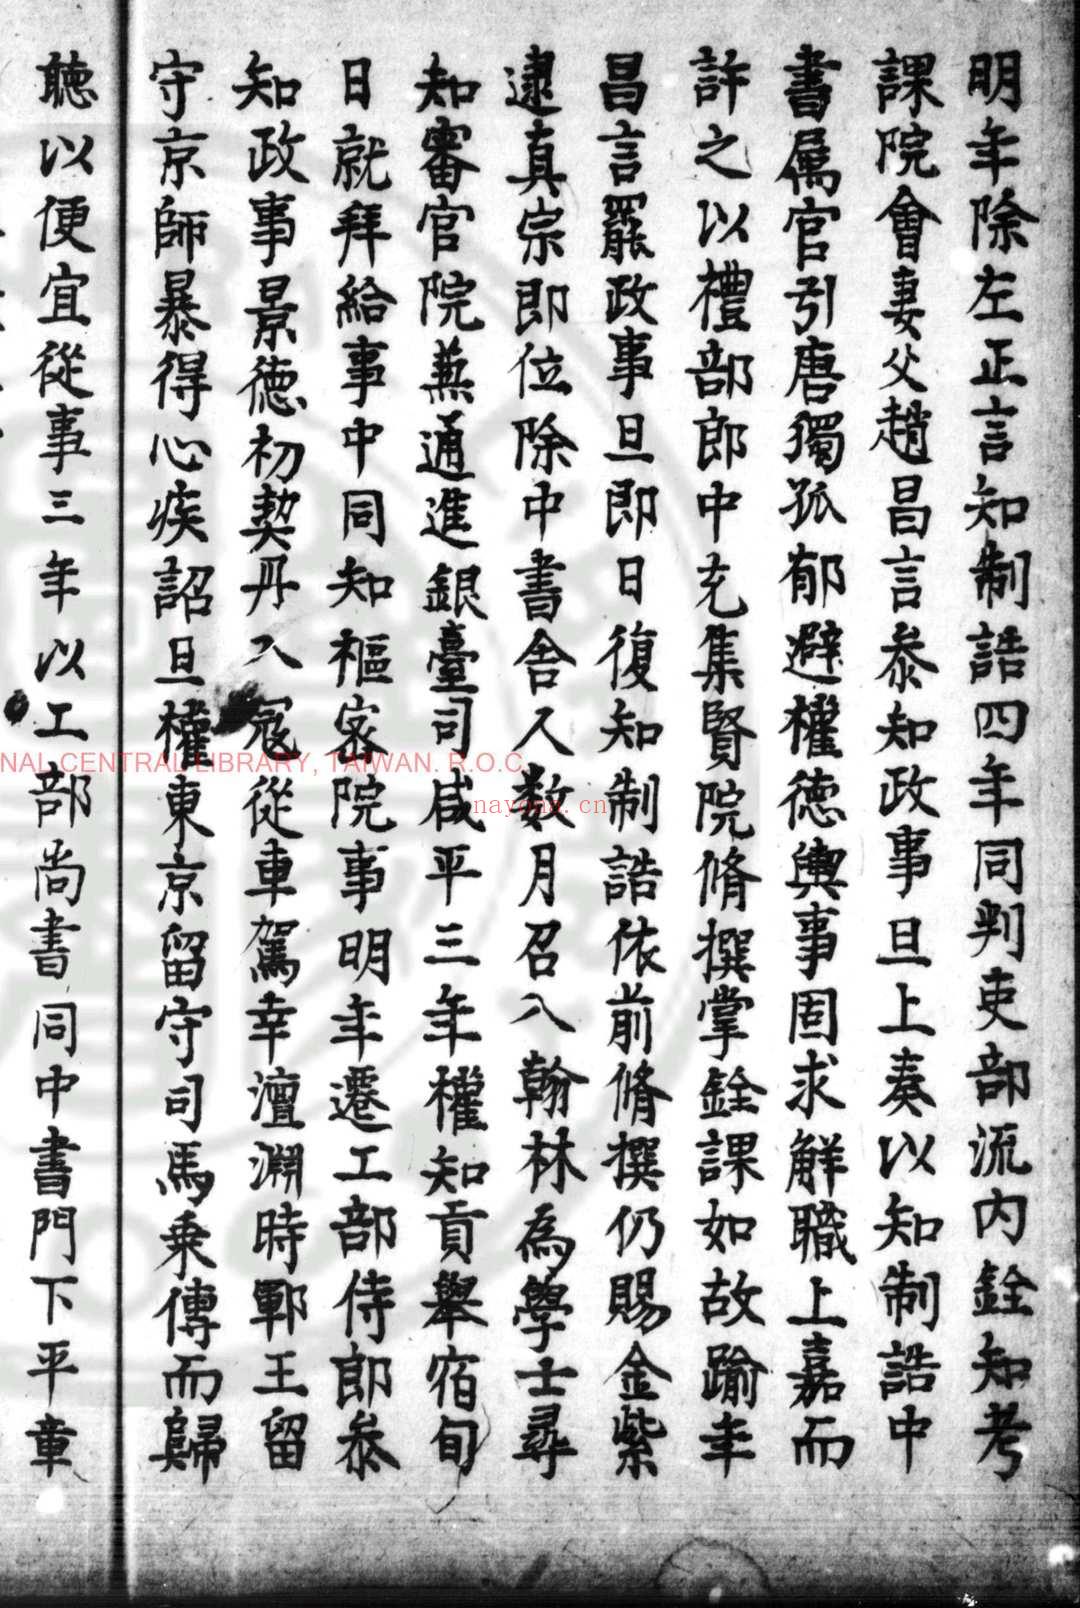 明年除左正言知制誥四年同判吏部流内銓知考
課院會妻父趙昌言叅知政事旦上奏以知制誥中
書属官引唐獨孤郁避權德輿事固求解職上嘉而
許之以禮部郎中充集賢院脩撰掌銓課如故踰年
昌言罷政事旦即日復知制誥依前脩撰仍賜金紫
逮真宗即位除中書舍人数月召入翰林為學士尋
知審官院蒹通進銀臺司咸平三年權知貢舉宿旬
日就拜給事中同知樞宻院事明年遷工部侍郎叅
知政事景德初契丹入冦從車駕幸澶淵時鄆王留
守京師暴得心疾詔旦權東京留守司馬乗傳而歸
聽以便宜從事三年以工部尚書同中書門下平章
NAL CENTRAL LIBRARY, TAIWAN. R.O.C.
nayona.cn